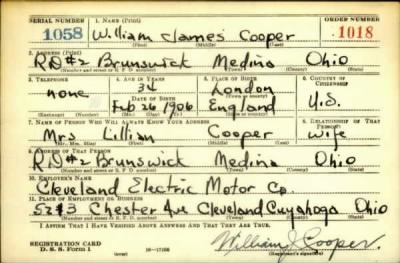 SERIAL NUMBER 1. NAME (Print) ORDER NUMBER
1058 William James Cooper 1018
(First) (Middle) (Last)
2. ADDRESS (Print)
R.D #2 Brunswick Medina Ohio
(Number and street or R. F. D. number) (Town) (County) (State)
3. TELEPHONE 4. AGE IN YEARS 5. PLACE OF BIRTH 6. COUNTRY OF CITIZENSHIP
none 34 London
DATE OF BIRTH
Feb 26 1906 England U.S.
(Exchange) (Number) (Mo.) (Day) (Yr.) (State or country)
7. NAME OF PERSON WHO WILL ALWAYS KNOW YOUR ADDRESS 8. RELATIONSHIP OF THAT PERSON
Mrs Lillian Cooper Wife
(Mr., Mrs., Miss) (First) (Middle) (Last)
9. ADDRESS OF THAT PERSON
R.D #2 Brunswick Medina Ohio
(Number and street or R. F. D. number) (Town) (County) (State)
10. EMPLOYER'S NAME
Cleveland Electric Motor Co.
11. PLACE OF EMPLOYMENT OR BUSINESS
5213 Chester Ave Cleveland Cuyahoga Ohio
(Number and street or R. F. D. number) (Town) (County) (State)
I AFFIRM THAT I HAVE VERIFIED ABOVE ANSWERS AND THAT THEY ARE TRUE.
REGISTRATION CARD
D. S. S. Form 1 (over) 16-17105 William J Cooper.
(Registrant's signature)